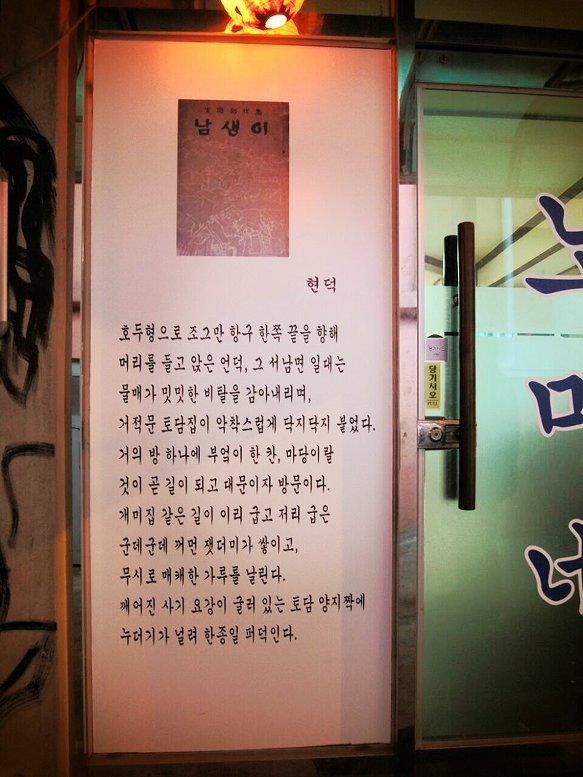 남생이
현덕
호두형으로 조그만 항구 한쪽 끝을 향해
머리를 들고 앉은 언덕, 그 서남면 일대는
물매가 밋밋한 비탈을 감아내리며,
거적문 토담집이 악착스럽게 닥지닥지 붙었다.
거의 방 하나에 부엌이 한 칸, 마당이랄
것이 곧 길이 되고 대문이자 방문이다.
개미집 같은 길이 이리 굽고 저리 굽은
군데군데 꺼먼 잿더미가 쌓이고,
무시로 매캐한 가루를 날린다.
깨어진 사기 요강이 굴러 있는 토담 양지짝에
누더기가 널려 한종일 퍼덕인다.
당기시오
PULL